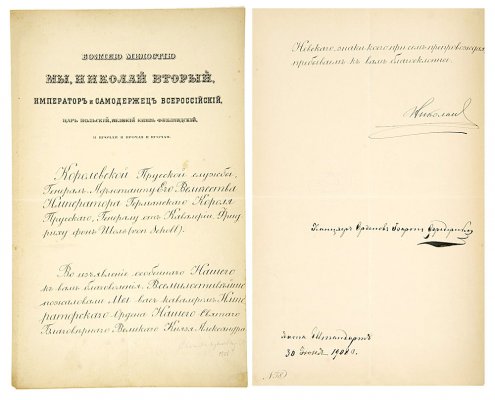 БОЖІЕЮ МИЛОСТІЮ
МЫ, НИКОЛАЙ ВТОРЫЙ,
ИМПЕРАТОРЪ и САМОДЕРЖЕЦЪ ВСЕРОССІЙСКІЙ,
ЦАРЬ ПОЛЬСКІЙ, ВЕЛИКІЙ КНЯЗЬ ФИНЛЯНДСКІЙ,
И ПРОЧАЯ И ПРОЧАЯ И ПРОЧАЯ.
Королевской Прусской службы,
Генералъ Адъютанту Его Величества
Императора Германскаго Короля
Прусскаго, Генералу отъ Кавалеріи Фрид
риху фонъ Шоль (von Scholl).
Во изъявленіе особеннаго Нашего
къ вамъ благоволенія, Всемилостивѣйше
пожаловали Мы васъ кавалеромъ Импе
раторскаго Ордена Нашего Святаго
Благовѣрнаго Великаго Князя Александра
Невскаго, знаки коего при семъ препровождая
пребываемъ къ вамъ благосклонны.
Николай
Канцлеръ Орденовъ Баронъ
Яхта Штандартъ
30 1908 г.